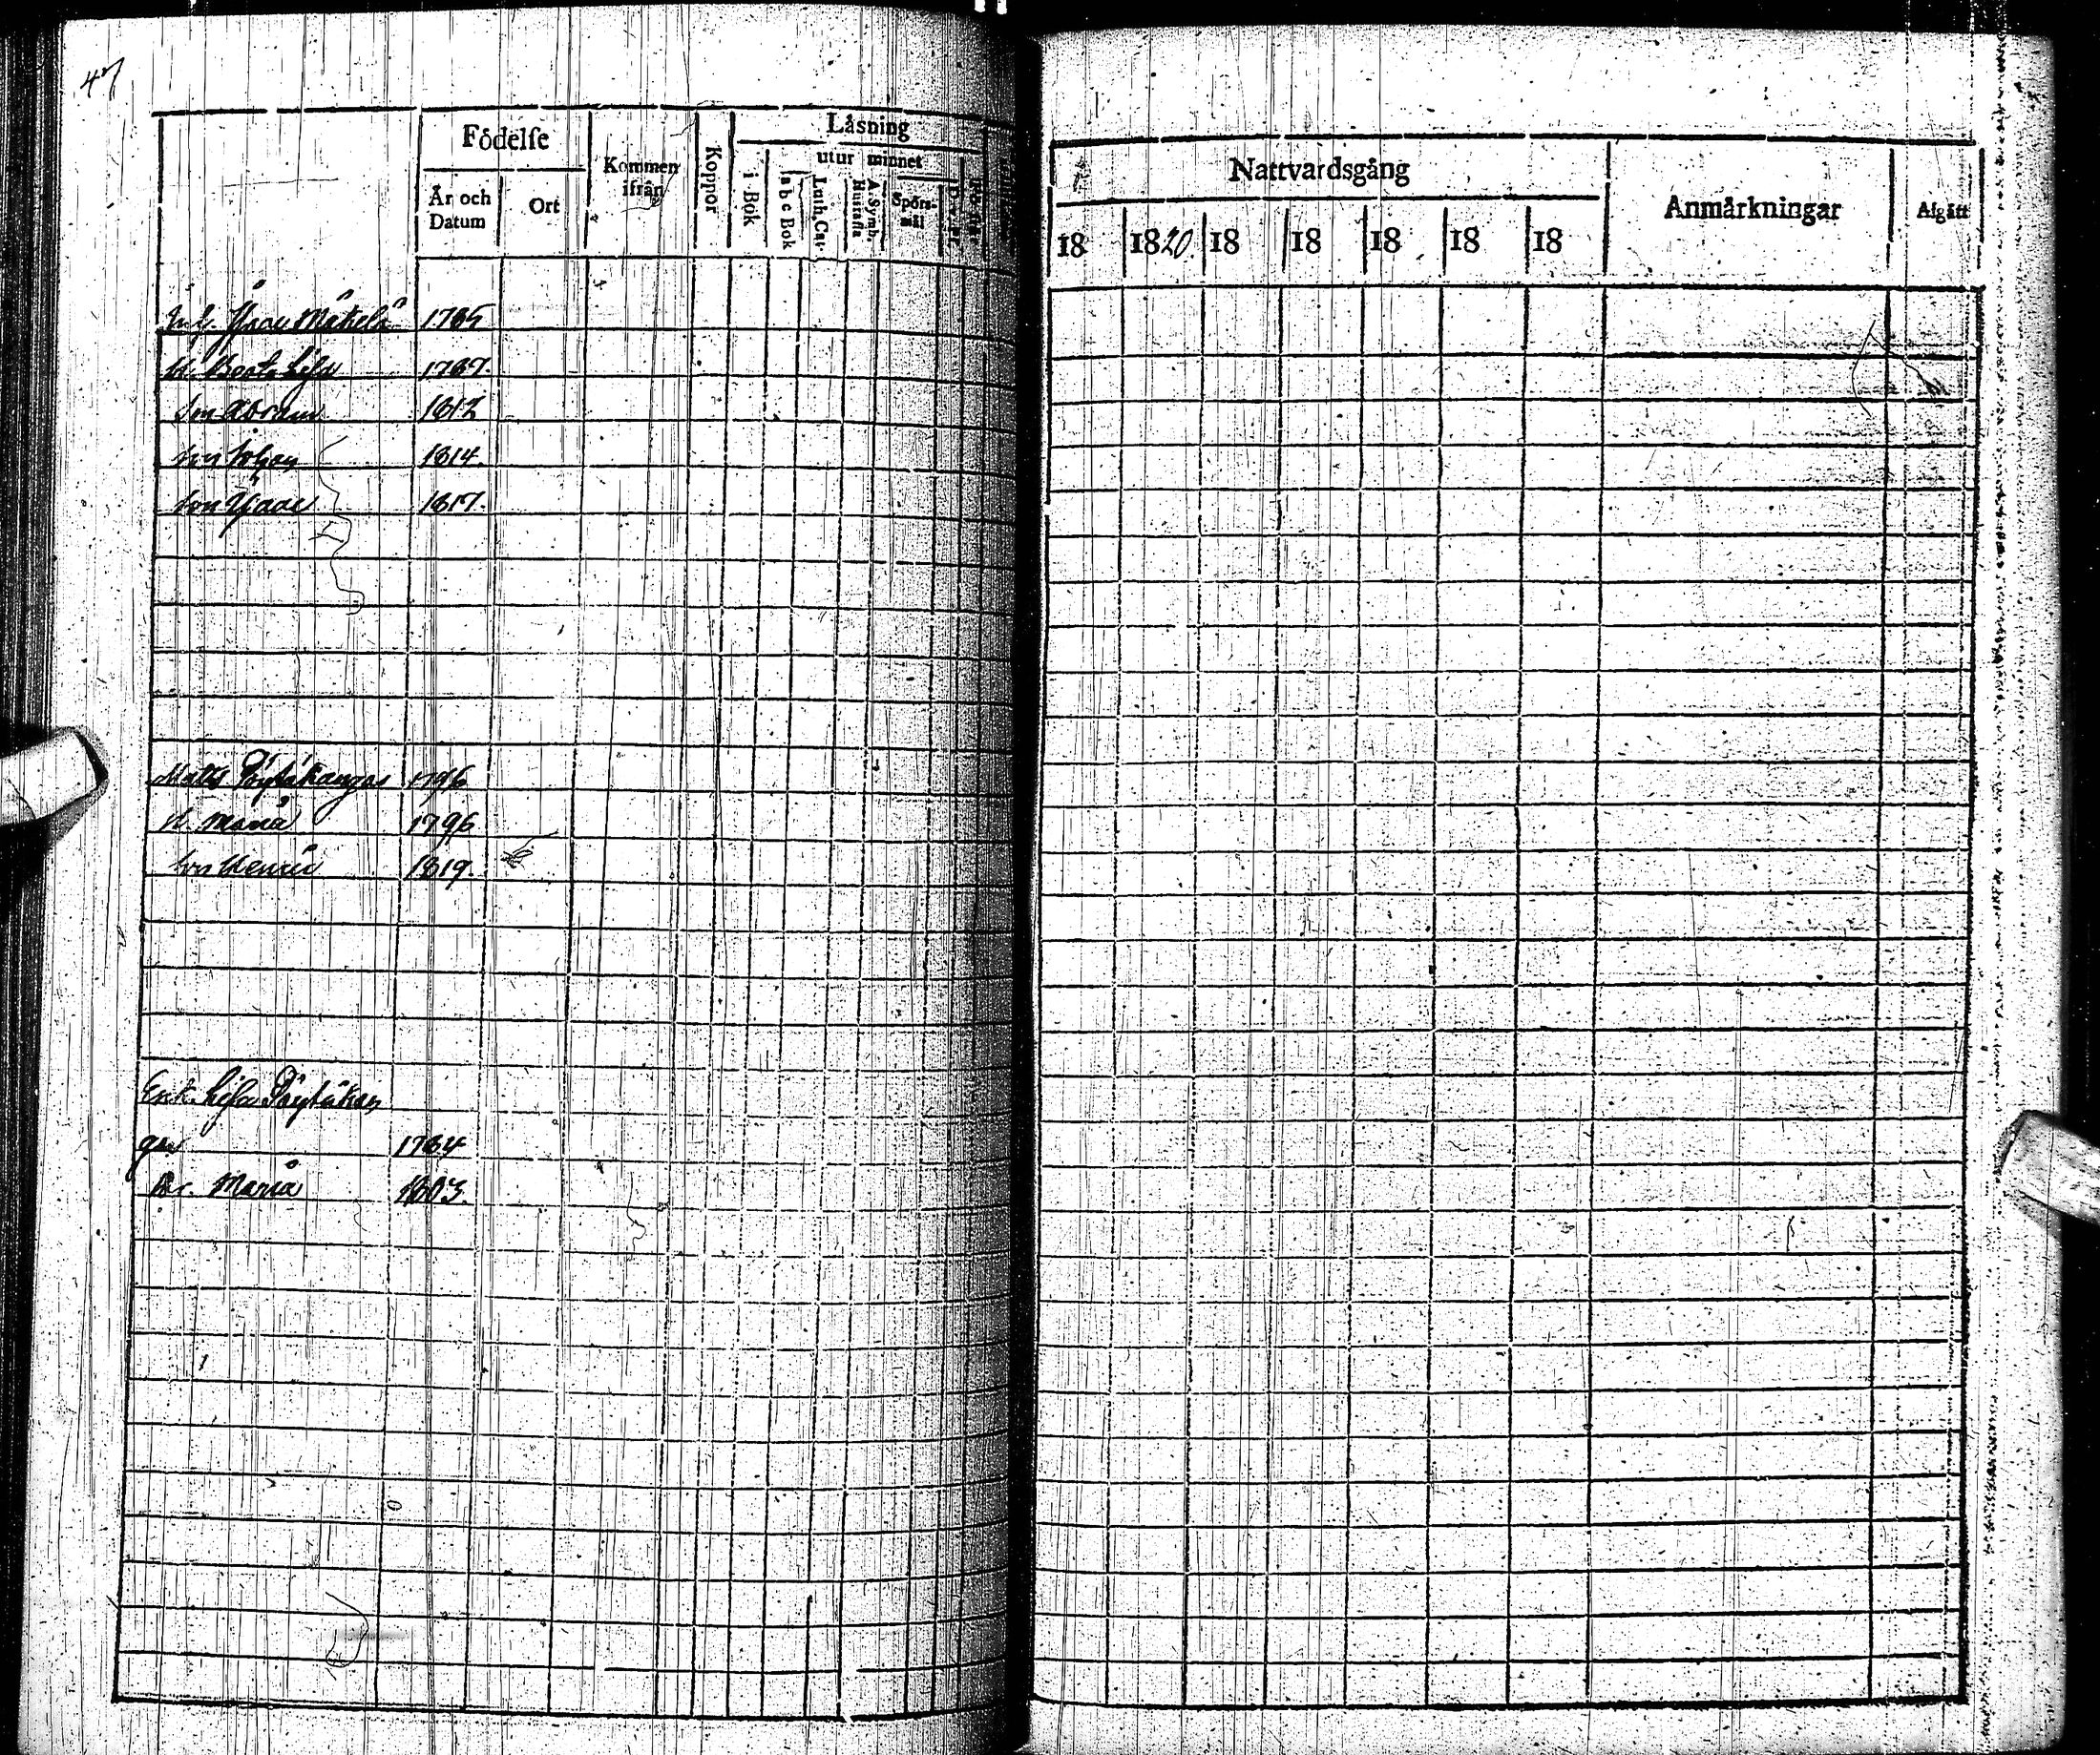 47
Födelse
Läsning
Kommen ifrån
Koppor
utur minnet
År och Datum
Ort
i Bok
a b c Bok
Luth. Cat.
A. Symb. Hustafla
Spörs-mål
Nattvardsgång
Anmärkningar
Afgått
18 1820. 18 18 18 18 18
Inh. Isaac Mäkelä 1765
h. Beata Lisa 1767.
Son Abram 1812
Son Johan 1814.
Son Isaac 1817.
Matts Pöytäkangas 1796
h. Maria 1796
Son Henric 1819.
Enk. Lisa Pöytäkan
gas 1764
Dr. Maria 1803.